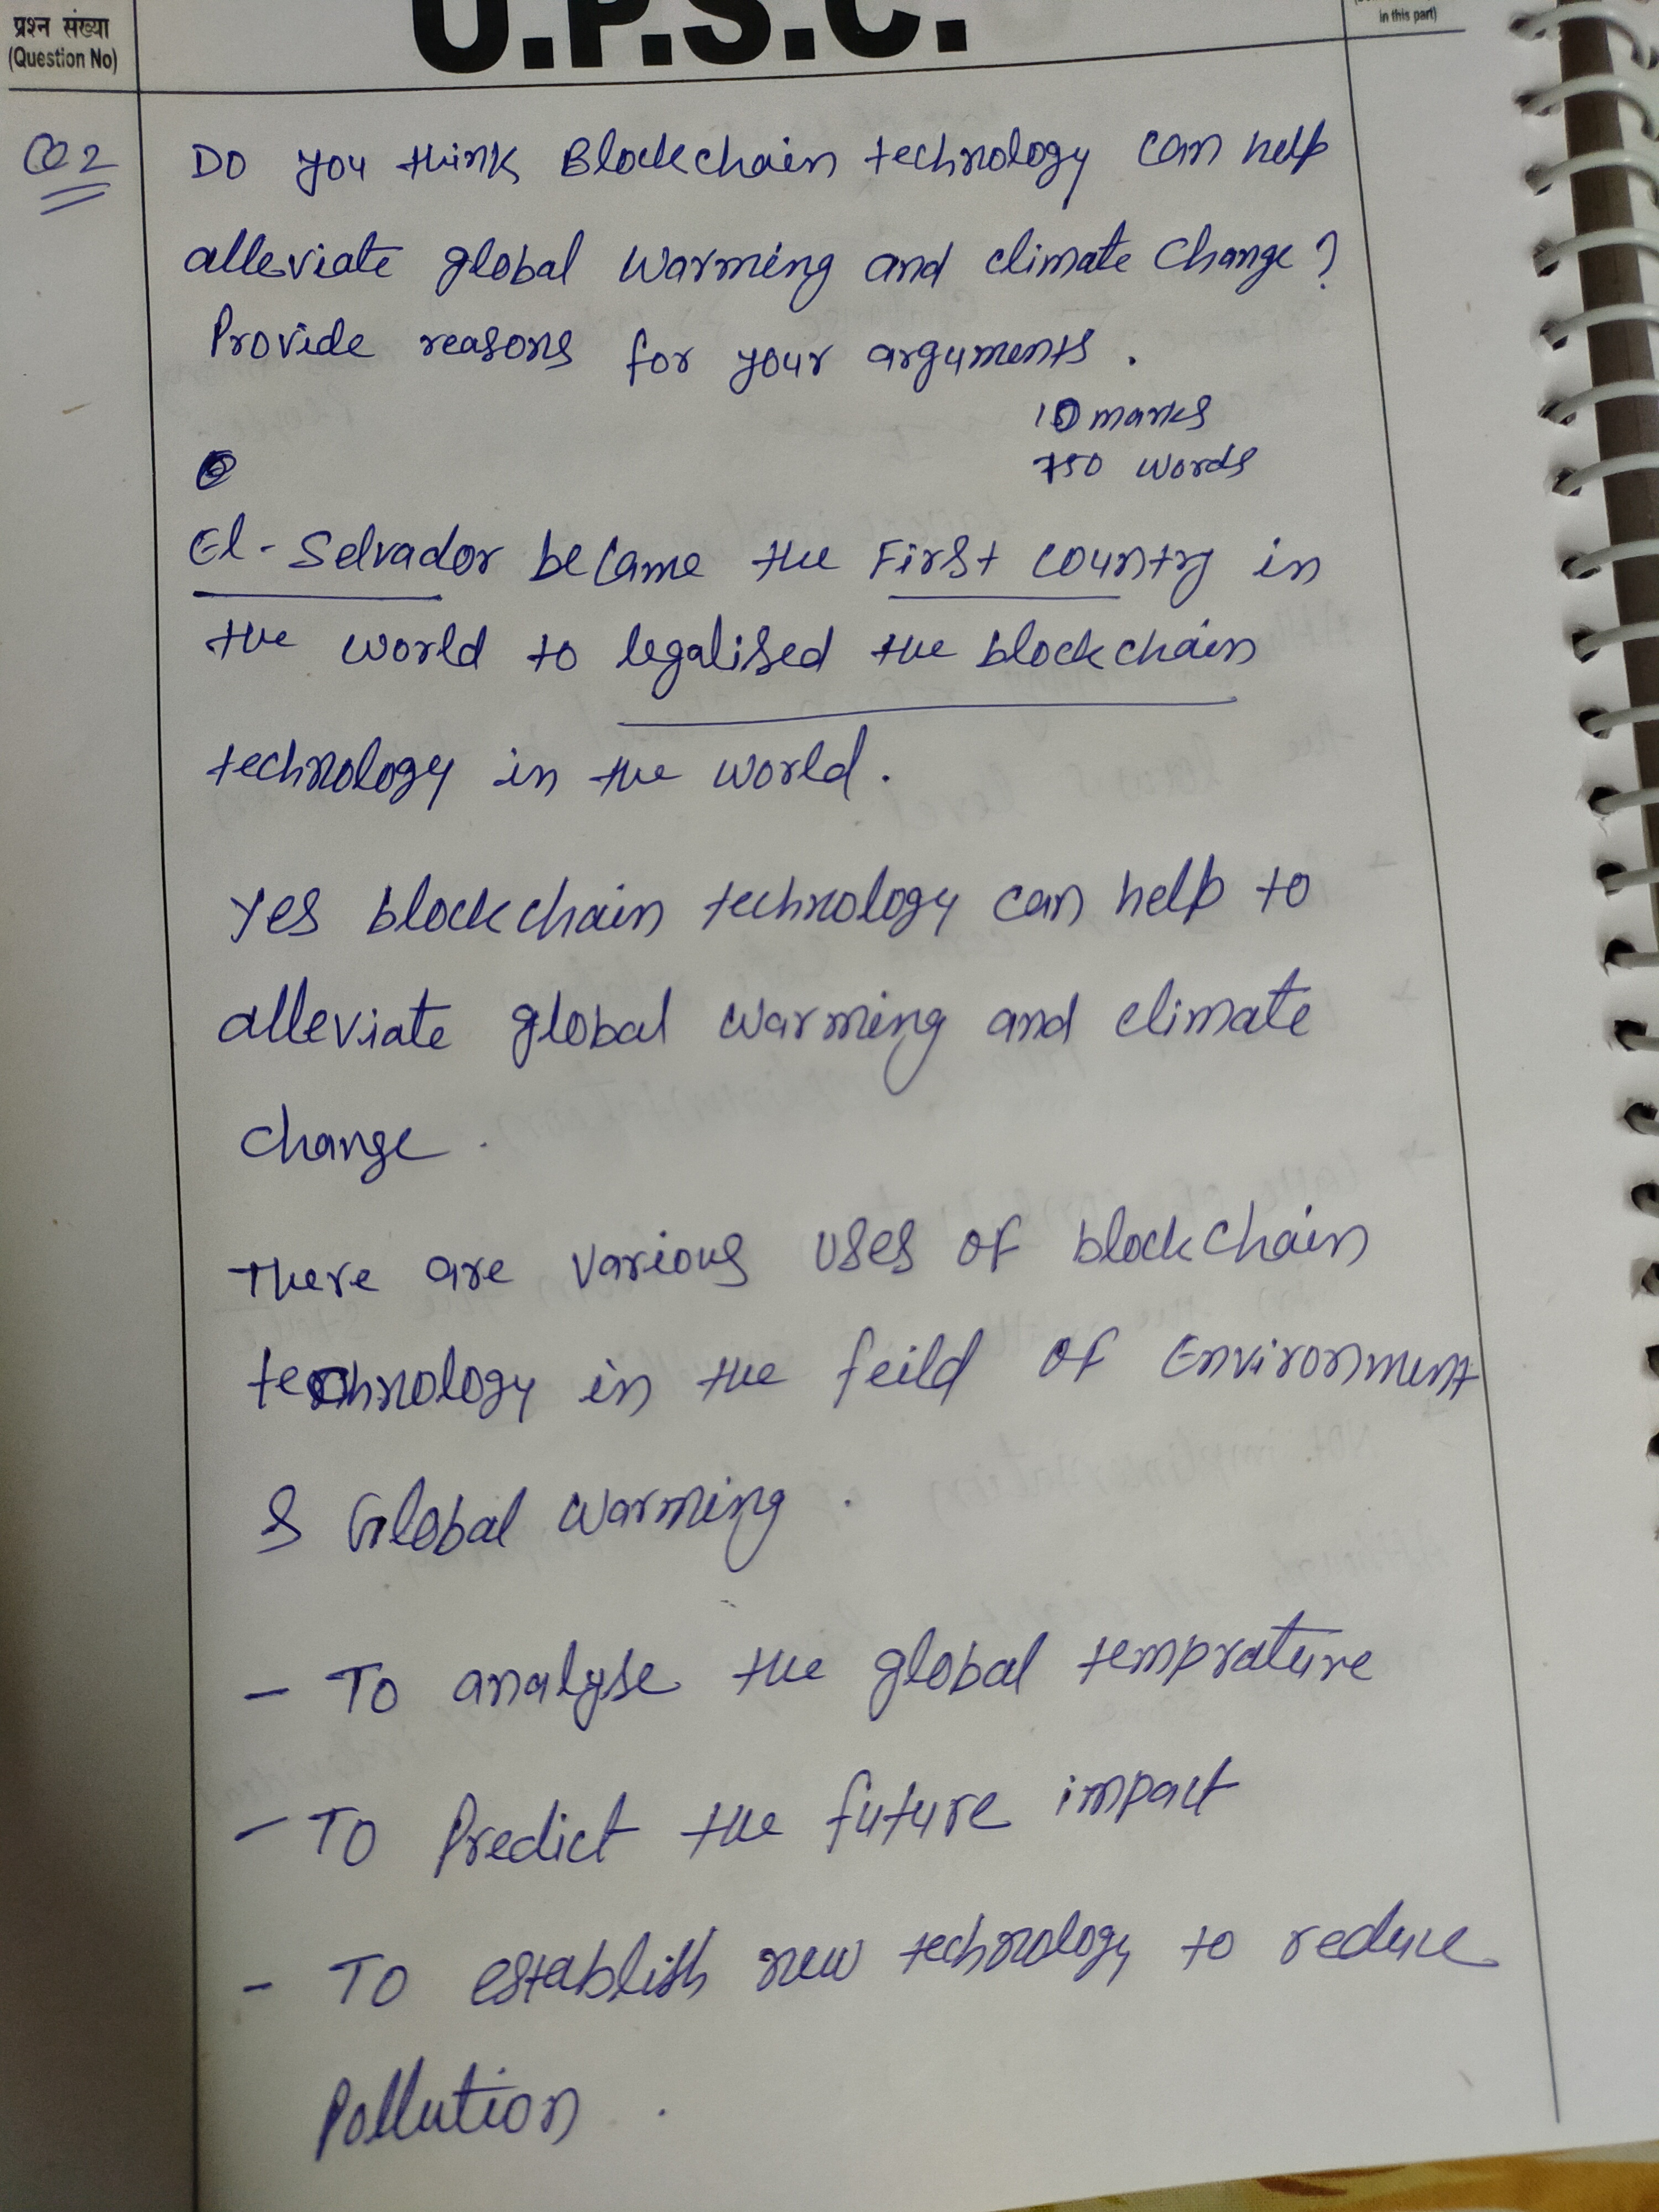 प्रश्न संख्या
(Question No)
U.P.S.C.
in this part)
Q2
Do you think Blockchain technology can help
alleviate global warming and climate change?
Provide reasons for your arguments.
10 marks
150 words
El-Selvador became the First country in
the world to legalised the blockchain
technology in the world.
Yes blockchain technology can help to
alleviate global warming and climate
change.
There are various uses of blockchain
technology in the feild of Environment
& Global warming.
- To analyse the global temprature
- To Predict the future impact
- To establish new technology to reduce
Pollution.